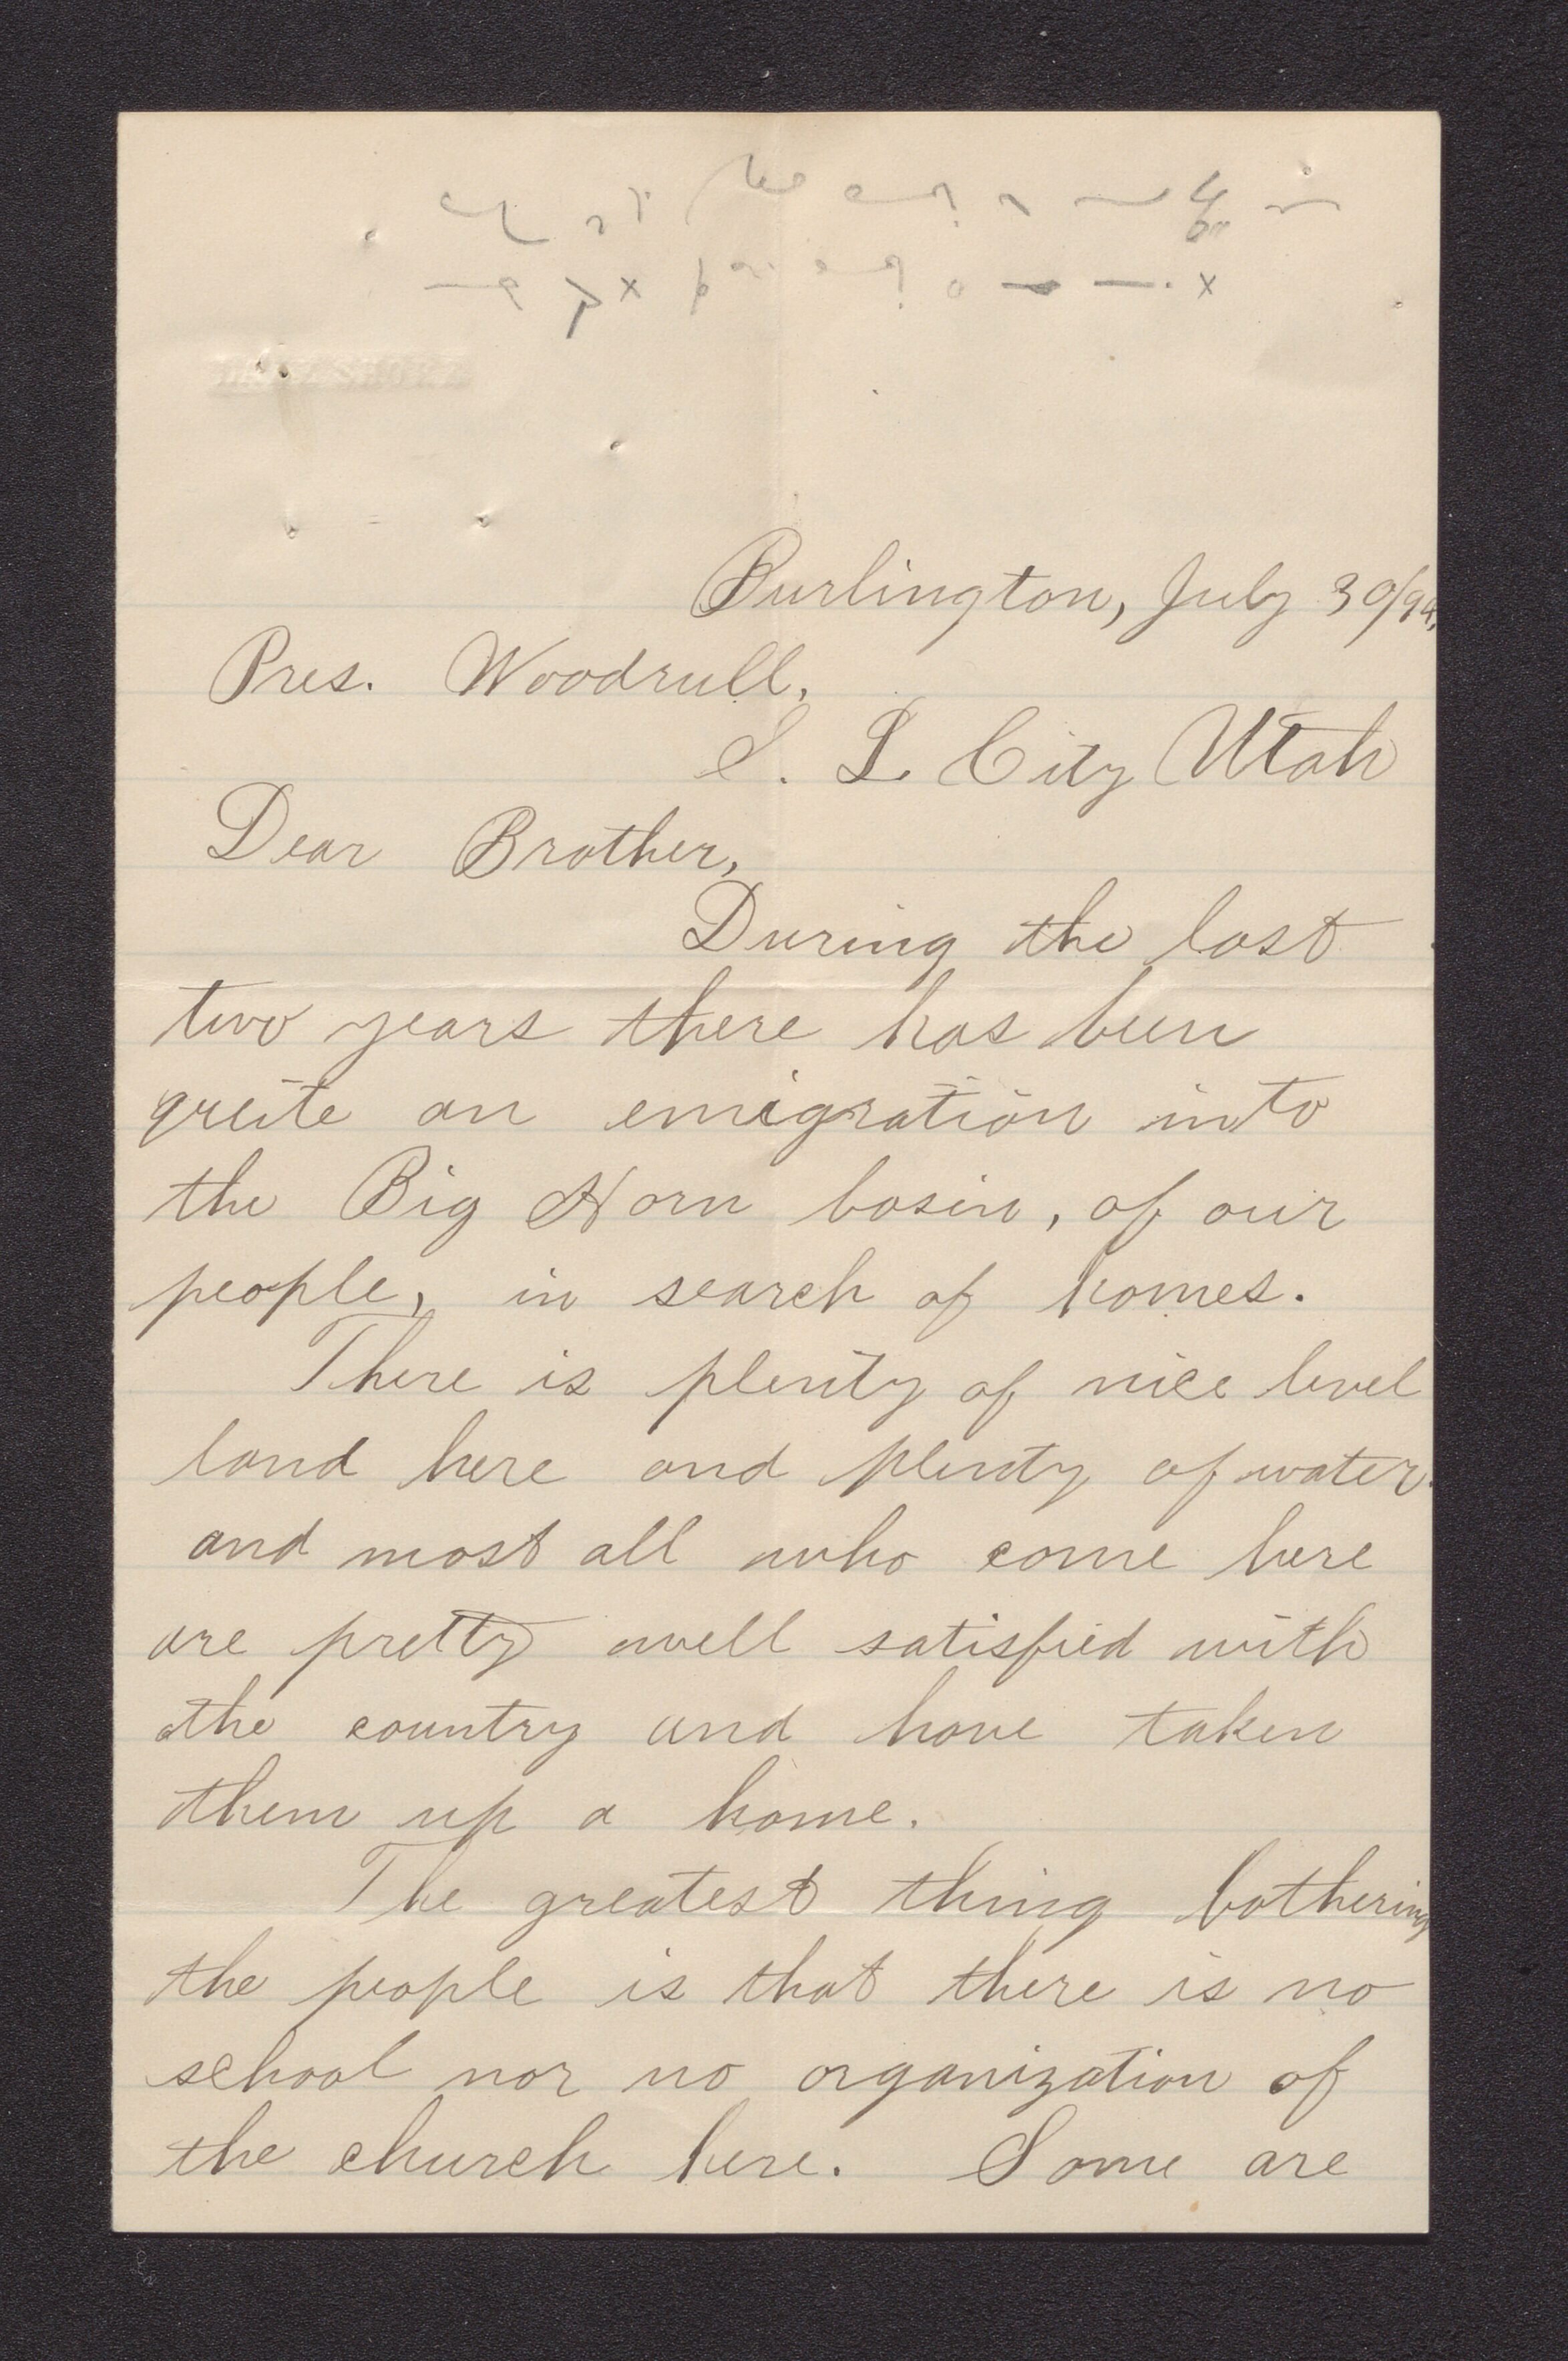 Burlington, July 30/94,
Pres. Woodruff,
S. L. City Utah
Dear Brother,
During the last
two years there has been
quite an emigration into
the Big Horn basin, of our
people, in search of homes.
There is plenty of nice level
land here and plenty of water.
and most all who come here
are pretty well satisfied with
the country and have taken
them up a home.
The greatest thing bothering
the people is that there is no
school nor no organization of
the church here. Some are